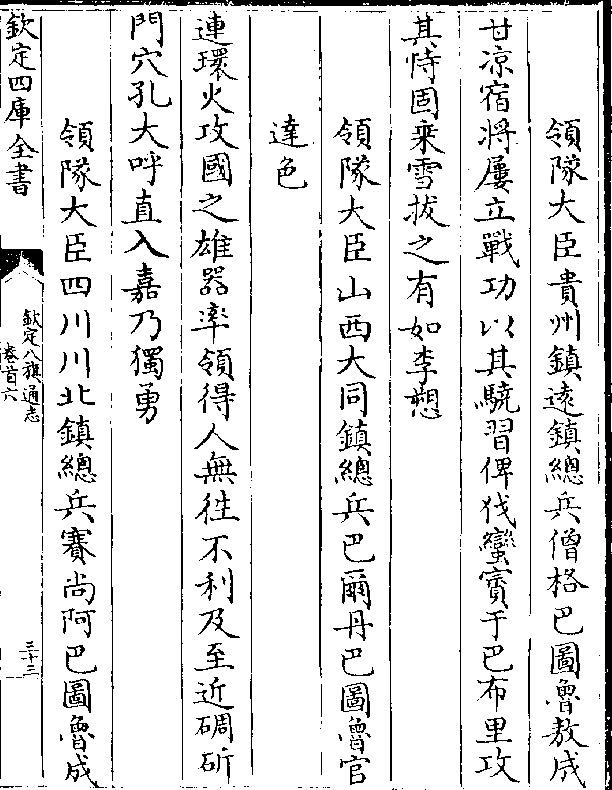 領隊大臣貴州鎮遠鎮總兵僧格巴圖魯敖成
甘凉宿將屢立戰功以其驍習俾伐蠻賨于巴布里攻
其恃固乘雪拔之有如李愬
領隊大臣山西大同鎮總兵巴爾丹巴圖魯官
達色
連環火攻國之雄器率領得人無往不利及至近碉斫
門穴孔大呼直入嘉乃獨勇
領隊大臣四川川北鎮總兵賽尚阿巴圖魯成
欽定四庫全書
欽定八旗通志
卷首六
三十三